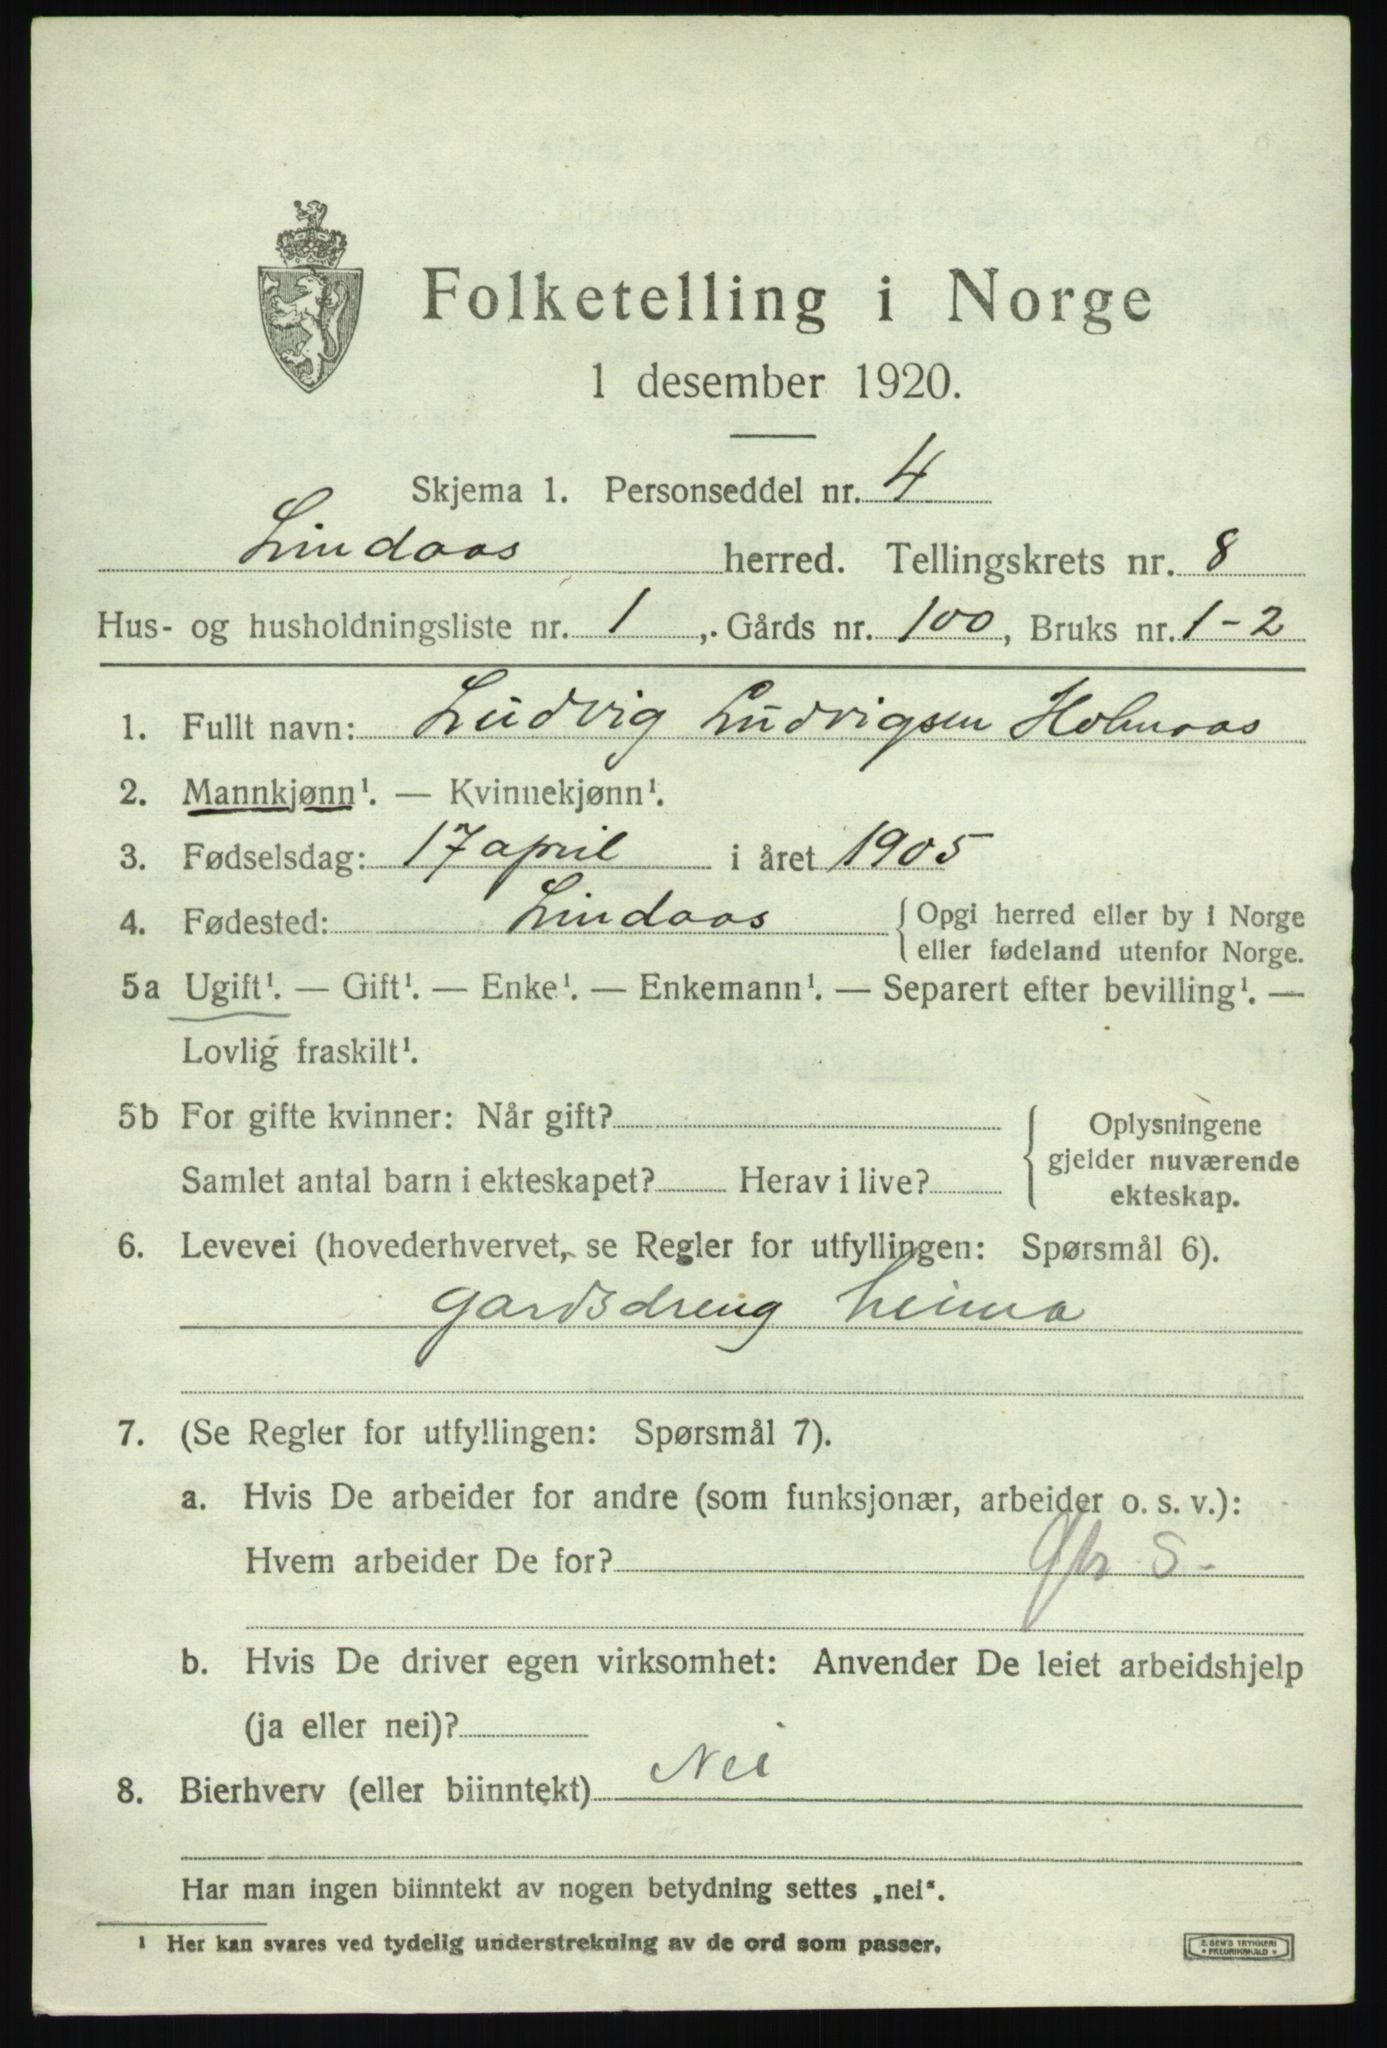 Folketelling i Norge
1 desember 1920.
Skjema 1. Personseddel nr. 4
Lindaas herred. Tellingskrets nr. 8
Hus- og husholdningsliste nr. 1, Gårds nr. 100, Bruks nr. 1-2
1. Fullt navn: Ludvig Ludvigsen Holmaas
2. Mannkjønn¹. — Kvinnekjønn¹.
3. Fødselsdag: 17 april i året 1905
4. Fødested: Lindaas { Opgi herred eller by i Norge
eller fødeland utenfor Norge.
5a Ugift¹. — Gift¹. — Enke¹. — Enkemann¹. — Separert efter bevilling¹. —
Lovlig fraskilt¹.
5b For gifte kvinner: Når gift?
Samlet antal barn i ekteskapet? Herav i live?
Oplysningene
gjelder nuværende
ekteskap.
6. Levevei (hovederhvervet, se Regler for utfyllingen: Spørsmål 6).
gardsdreng heima
7. (Se Regler for utfyllingen: Spørsmål 7).
a. Hvis De arbeider for andre (som funksjonær, arbeider o. s. v.):
Hvem arbeider De for? S-
b. Hvis De driver egen virksomhet: Anvender De leiet arbeidshjelp
(ja eller nei)?
8. Bierhverv (eller biinntekt) Nei
Har man ingen biinntekt av nogen betydning settes „nei“.
¹ Her kan svares ved tydelig understrekning av de ord som passer.